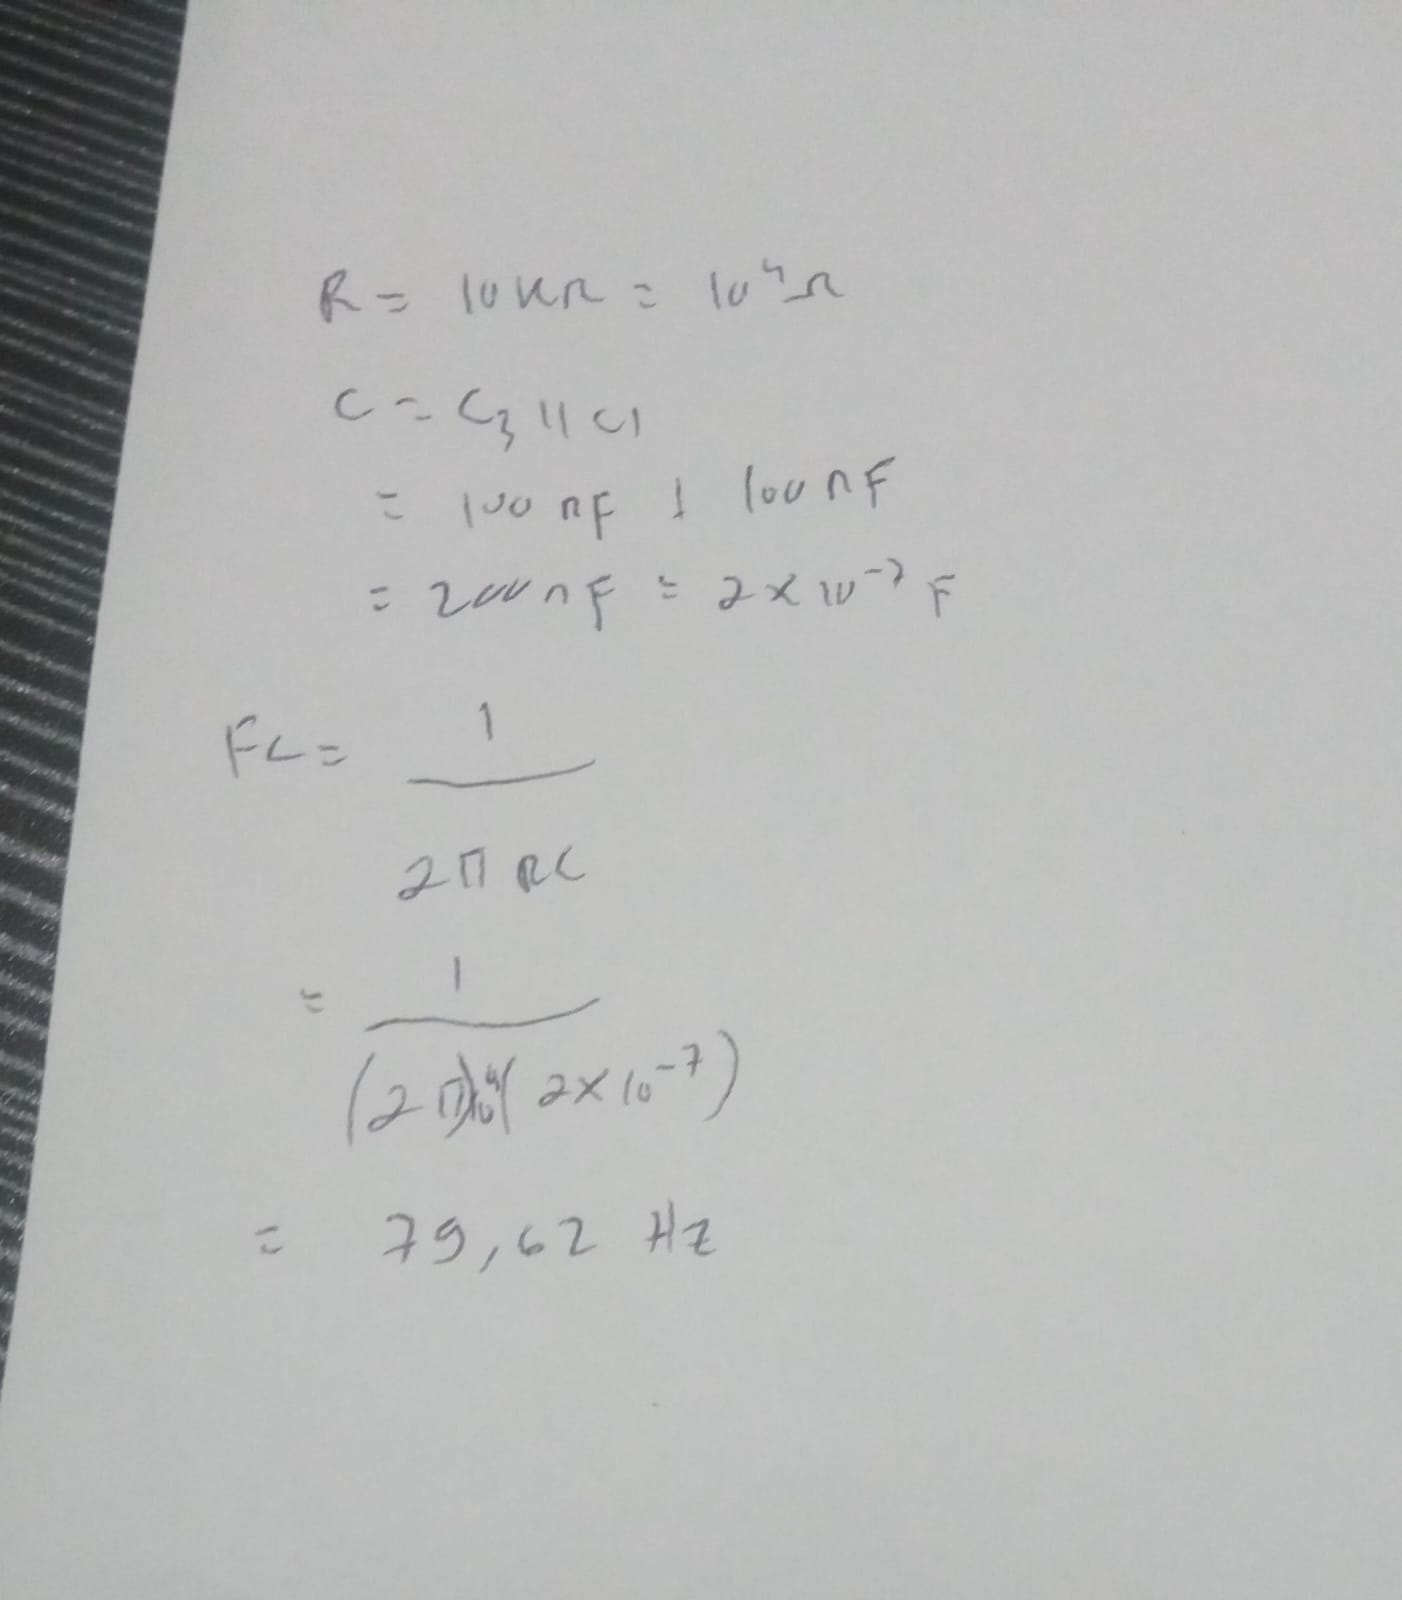 R = 10 KΩ = 10⁴Ω
C = C₃ || C1
= 100 nF + 100 nF
= 200 nF = 2 x 10⁻⁷ F
Fc = 1
2π RC
= 1
(2π)10⁴(2x10⁻⁷)
= 79,62 Hz